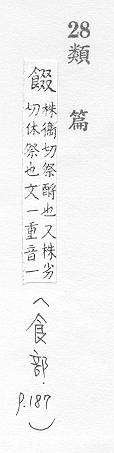 28 類篇
餟
株衞切祭酹也又株劣
切休祭也文一重音一
(食部. p.187)